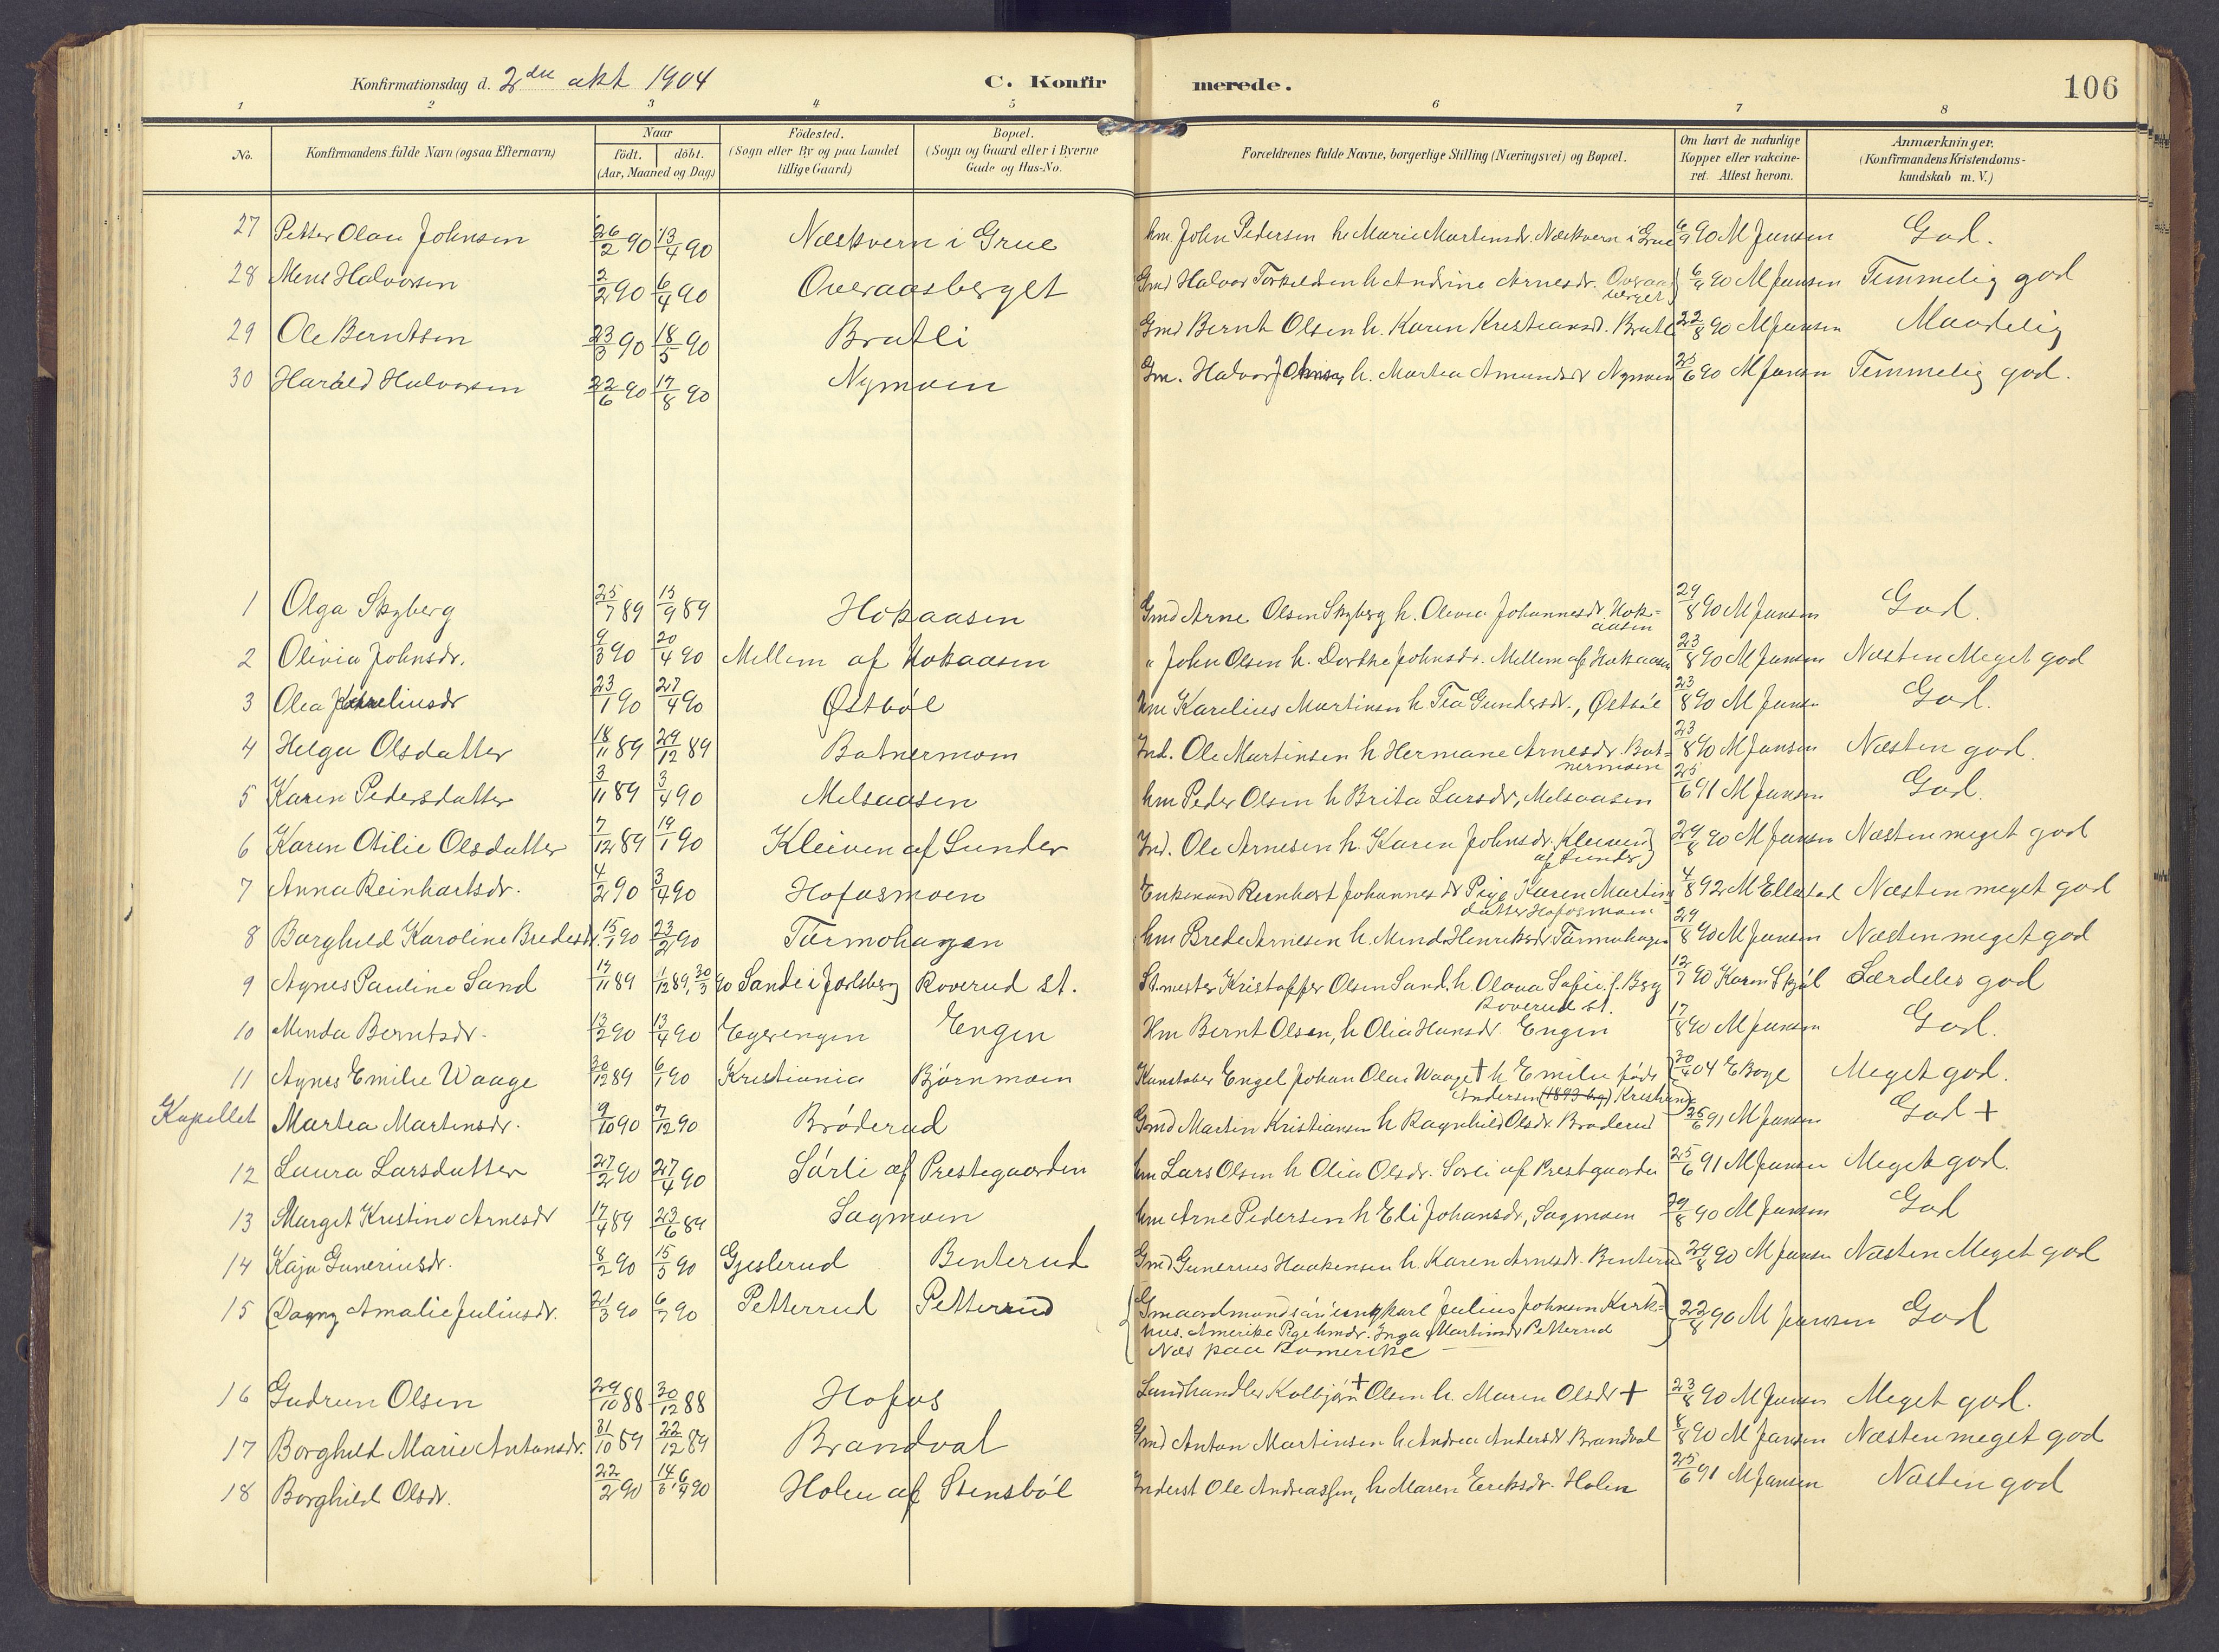 Konfirmationsdag d. 2den okt 1904 C. Konfirmerede. 106
1 2 3 4 5 6 7 8
No. Konfirmandens fulde Navn (ogsaa Efternavn) Naar födt. döbt. (Aar, Maaned og Dag.) Födested. (Sogn eller By og paa Landet tillige Gaard) Bopæl. (Sogn og Gaard eller i Byerne Gade og Hus-No. Forældrenes fulde Navne, borgerlige Stilling (Næringsvei) og Bopæl. Om havt de naturlige Kopper eller vakcineret. Attest herom. Anmærkninger. (Konfirmandens Kristendomskundskab m. V.)
27 Petter Olau Johnsen 26/2 90 13/4 90 Næskvern i Grue hm. John Pedersen h. Marie Martinsdr. Næskvern i Grue 6/9 90 M Jansen God.
28 Mens Halvorsen 2/2 90 6/4 90 Overaasberget Gmd Halvor Torkeldsen h Andrine Arnesdr. Overaasberget 6/9 90 M Jansen Temmelig god
29 Ole Berntsen 23/3 90 18/5 90 Bratli Gmd Bernt Olsen h. Karen Kristiansd. Bratli 22/8 90 M Jansen Maadelig
30 Harald Halvorsen 22/6 90 17/8 90 Nymoen Gm. Halvor Johnsen h. Martea Amundsdr Nymoen 25/6 90 M Jansen Temmelig god.
1 Olga Skyberg 25/7 89 15/9 89 Hokaasen Gmd Arne Olsen Skyberg h. Olivia Johannesdr. Hokaasen 29/8 90 M Jansen God.
2 Olivia Johnsdr. 9/3 90 20/4 90 Mellem af Hokaasen " John Olsen h. Dorthe Johnsdr. Mellem af Hokaasen 23/8 90 M Jansen Næsten Meget god
3 Olea Kareliusdr 23/1 90 27/4 90 Østbøl hm Karelius Martinsen h Tea Gundersdr., Østbøl 23/8 90 M Jansen God.
4 Helga Olsdatter 18/11 89 29/12 89 Batnermoen Ind. Ole Martinsen h Hermane Arnesdr. Batnermoen 23/8 90 M Jansen Næsten god.
5 Karen Pedersdatter 3/11 89 3/4 90 Melsaasen hm Peder Olsen h Brita Larsdr, Melsaasen 25/6 91 M Jansen God.
6 Karen Otilie Olsdatter 7/12 89 19/1 90 Kleiven af Lunder Ind. Ole Arnesen h. Karen Johnsdr. Kleiven af Lunder 29/8 90 M Jansen Næsten meget god
7 Anna Reinhartsdr. 4/2 90 3/4 90 Hofosmoen Enkemand Reinhart Johannes Pige Karen Martinsdatter Hofosmoen 4/8 92 M Ellestad Næsten meget god
8 Borghild Karoline Bredesdr. 15/1 90 23/2 90 Tørmohagen hm Brede Arnesen h. Minda Henriksdr Tørmohagen 29/8 90 M Jansen Næsten meget god
9 Agnes Pauline Sand 14/11 89 1/12 89, 30/3 90 Sande i Jarlsberg Roverud st. St.mester Kristoffer Olsen Sand. h. Olava Sofie f. Berg Roverud st. 12/7 90 Karen Skjøl Særdeles god
10 Minda Berntsdr. 13/2 90 13/4 90 Egerengen Engen Hm Bernt Olsen, h Olia Hansdr. Engen 17/8 90 M Jansen God.
11 Agnes Emilie Waage 30/12 89 6/1 90 Kristiania Bjørnmoen Konstabel Engel Johan Olai Waage + h Emilie født Andersen (1893 bg) Kristiania 30/4 04 E Boye Meget god.
Kapellet Martea Martinsdr. 9/10 90 7/12 90 Brøderud Gmd Martin Kristiansen h Ragnhild Olsdr. Brøderud 25/6 91 M Jansen God +
12 Laura Larsdatter 27/2 90 27/4 90 Sørli af Prestegaarden hm Lars Olsen h Olia Olsdr. Sørli af Prestgaarden 25/6 91 M Jansen Meget god.
13 Marget Kristine Arnesdr 17/4 89 23/6 89 Sagmoen hm Arne Pedersen h Eli Johansdr, Sagmoen 29/8 90 M Jansen God
14 Kaja Guneriusdr. 8/2 90 15/5 90 Gjeslerud Benterud Gmd Gunerius Haakensen h. Karen Arnesdr. Benterud 29/8 90 M Jansen Næsten Meget god
15 Dagny Amalie Juliusdr. 21/3 90 6/7 90 Petterrud Petterrud ungkarl Julius Johnsen Kirkhus. Amerika Pige hmdr. Inga Martinsdr Petterrud
Næs paa Romerike 22/8 90 M Jansen God
16 Gudrun Olsen 29/10 88 30/12 88 Hofos Landhandler Kolbjørn + Olsen h. Maren Olsdr + 23/8 90 M Jansen Meget god.
17 Borghild Marie Antonsdr. 31/10 89 22/12 89 Brandval Gmd Anton Martinsen h Andrea Andersdr Brandval 8/8 90 M Jansen Næsten meget god
18 Borghild Olsdr. 22/2 90 14/3 6/4 90 Holen af Stensbøl Inderst Ole Andreassen, h. Maren Eriksdr. Holen 25/6 91 M Jansen Næsten god